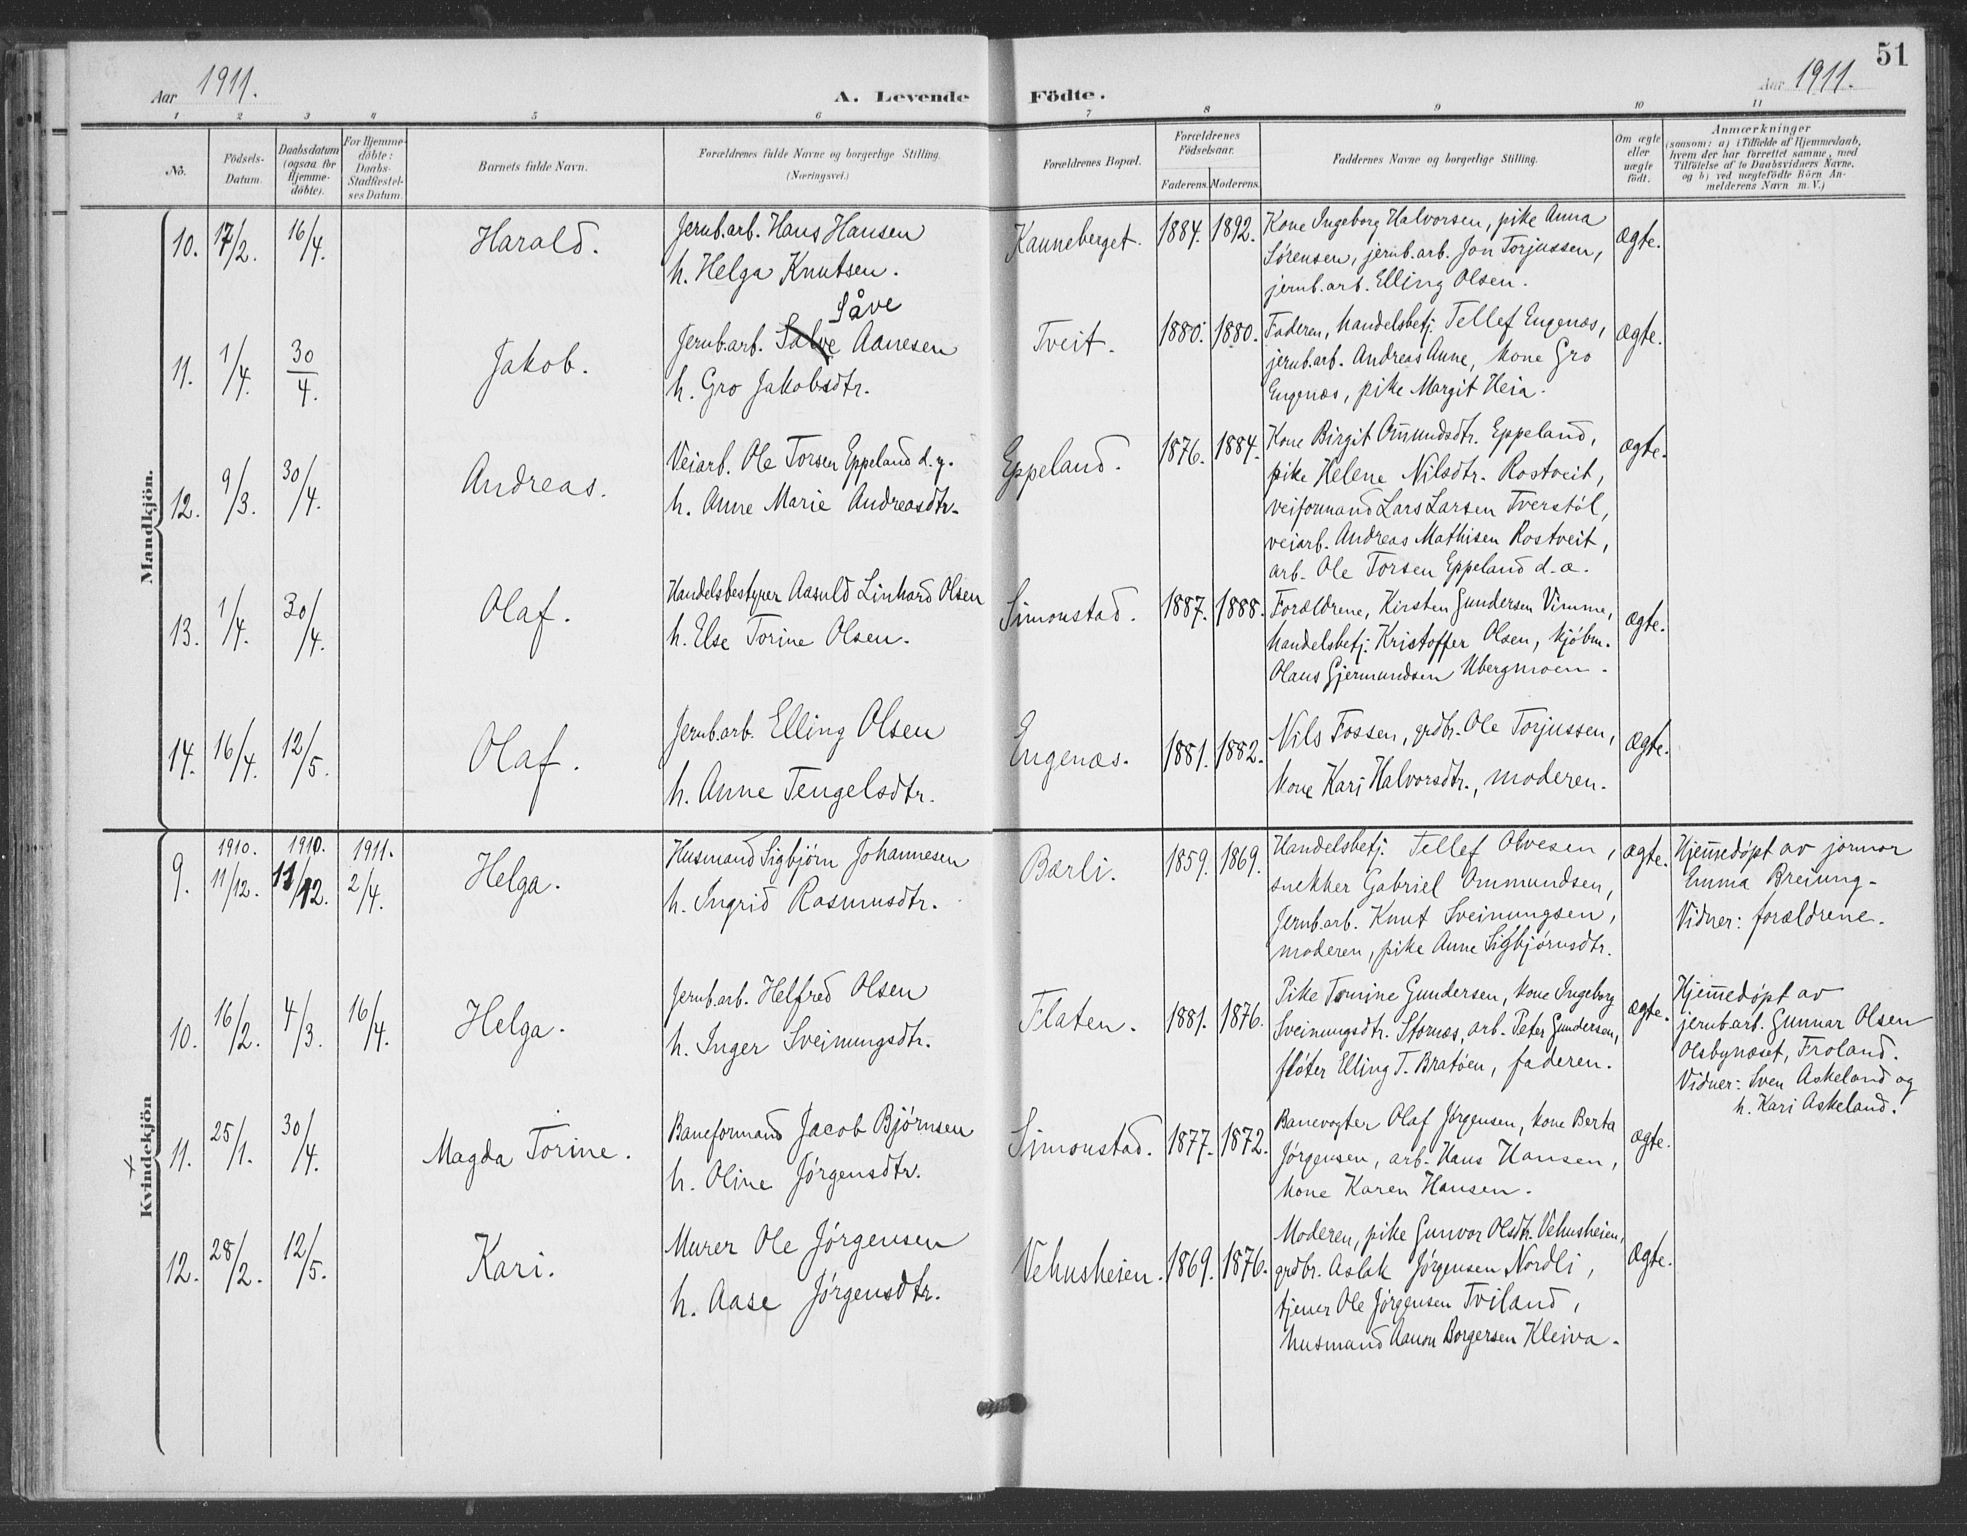 51
Aar 1911.
A. Levende Födte.
Aar 1911.
1 2 3 4 5 6 7 8 9 10 11
No.
Födsels-
Datum.
Daabsdatum
(ogsaa for
Hjemme-
döbte).
For Hjemme-
döbte:
Daabs-
Stadfæstel-
ses Datum.
Barnets fulde Navn.
Forældrenes fulde Navne og borgerlige Stilling.
(Næringsvei.)
Forældrenes Bopæl.
Forældrenes
Födselsaar.
Faderens. Moderens.
Faddernes Navne og borgerlige Stilling.
Om ægte
eller
uægte
födt.
Anmærkninger
(saasom: a) i Tilfælde af Hjemmedaab,
hvem der har forrettet samme, med
Tilföielse af to Daabsvidners Navne,
og b) ved uægtefödte Börn An-
melderens Navn m. V.)
Mandkjön.
10. 17/2. 16/4. Harald.
Jernb.arb. Hans Hansen
h. Helga Knutsen.
Kanneberget. 1884. 1892.
Kone Ingeborg Halvorsen, pike Anna
Sørensen, jernb.arb. Jon Torjussen,
jernb.arb. Elling Olsen.
ægte.
11. 1/4. 30/4. Jakob.
Såve
Jernb.arb. Salve Aanesen
h. Gro Jakobsdtr.
Tveit. 1880. 1880.
Faderen, handelsbetj. Tellef Engenæs,
jernb.arb. Andreas Aune, kone Gro
Engenæs, pike Margit Heia.
ægte.
12. 9/3. 30/4. Andreas.
Veiarb. Ole Torsen Eppeland d.y.
h. Anne Marie Andreasdtr.
Eppeland. 1876. 1884.
Kone Birgit Omundsdtr. Eppeland,
pike Helene Nilsdtr. Rostveit,
veiformand Lars Larsen Tverstøl,
veiarb. Andreas Mathisen Rostveit,
arb. Ole Torsen Eppeland d.æ.
ægte.
13. 1/4. 30/4. Olaf.
Handelsbestyrer Aasuld Linhard Olsen
h. Else Torine Olsen.
Simonstad. 1887. 1888.
Forældrene, Kirsten Gundersen Vimme,
handelsbetj. Kristoffer Olsen, kjøbm.
Olaus Gjermundsen Ubergmoen.
ægte.
14. 16/4. 12/5. Olaf.
Jernb.arb. Elling Olsen
h. Anne Tengelsdtr.
Engenæs. 1881. 1882.
Nils Fossen, grdbr. Ole Torjussen,
kone Kari Halvorsdtr., moderen.
ægte.
Kvindekjön
9. 1910. 11/12. 1910. 11/12. 1911. 2/4. Helga.
Husmand Sigbjørn Johannesen
h. Ingrid Rasmusdtr.
Bærli. 1859. 1869.
Handelsbetj. Tellef Olvesen,
snekker Gabriel Ommundsen,
Jernb.arb. Knut Sveinungsen,
moderen, pike Anne Sigbjørnsdtr.
ægte.
Hjemmedøpt av jormor
Emma Breiung.
Vidner: forældrene.
10. 16/2. 4/3. 16/4. Helga.
Jernb.arb. Helfred Olsen
h. Inger Sveinungsdtr.
Flaten. 1881. 1876.
Pike Tomine Gundersen, kone Ingeborg
Sveinungsdtr. Stornæs, arb. Peter Gundersen,
fløter Elling T. Bratøen, faderen.
ægte.
Hjemmedøpt av
jernb.arb. Gunnar Olsen
Olsbynæset, Froland.
Vidner: Sven Askeland og
h. Kari Askeland.
11. 25/1. 30/4. Magda Torine.
Baneformand Jacob Bjørnsen
h. Oline Jørgensdtr.
Simonstad. 1877. 1872.
Banevogter Olaf Jørgensen, kone Berta
Jørgensen, arb. Hans Hansen,
kone Karen Hansen.
ægte.
12. 28/2. 12/5. Kari.
Murer Ole Jørgensen
h. Aase Jørgensdtr.
Vehusheien. 1869. 1876.
Moderen, pike Gunvor Olsdtr. Vehusheien,
grdbr. Aslak Jørgensen Nordli,
tjener Ole Jørgensen Tviland,
husmand Aanon Borgersen Kleiva.
ægte.